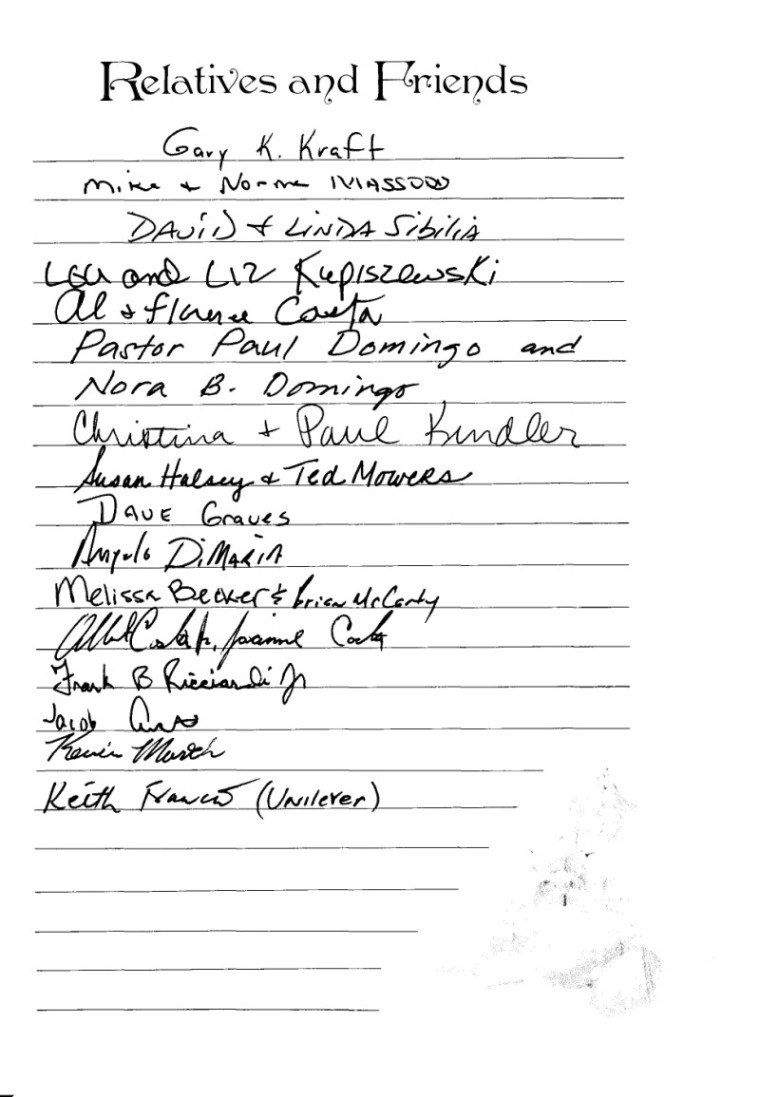 Relatives and Friends
Gary K. Kraft
Mike + Norma
DAViD + LiNDA SibiliA
Lou and Liz Kupiszewski
Al & Florence Costa
Pastor Paul Domingo and
Nora B. Domingo
Christina + Paul Kindler
Susan Halsey & Ted Mowers
DAVE Graves
Angelo DiMARIA
Melissa Becker & Brian McCarthy
Albert Costa Jr. Joanne Costa
Frank B Ricciardi Jr
Jacob
Kevin
Keith (Unilever)